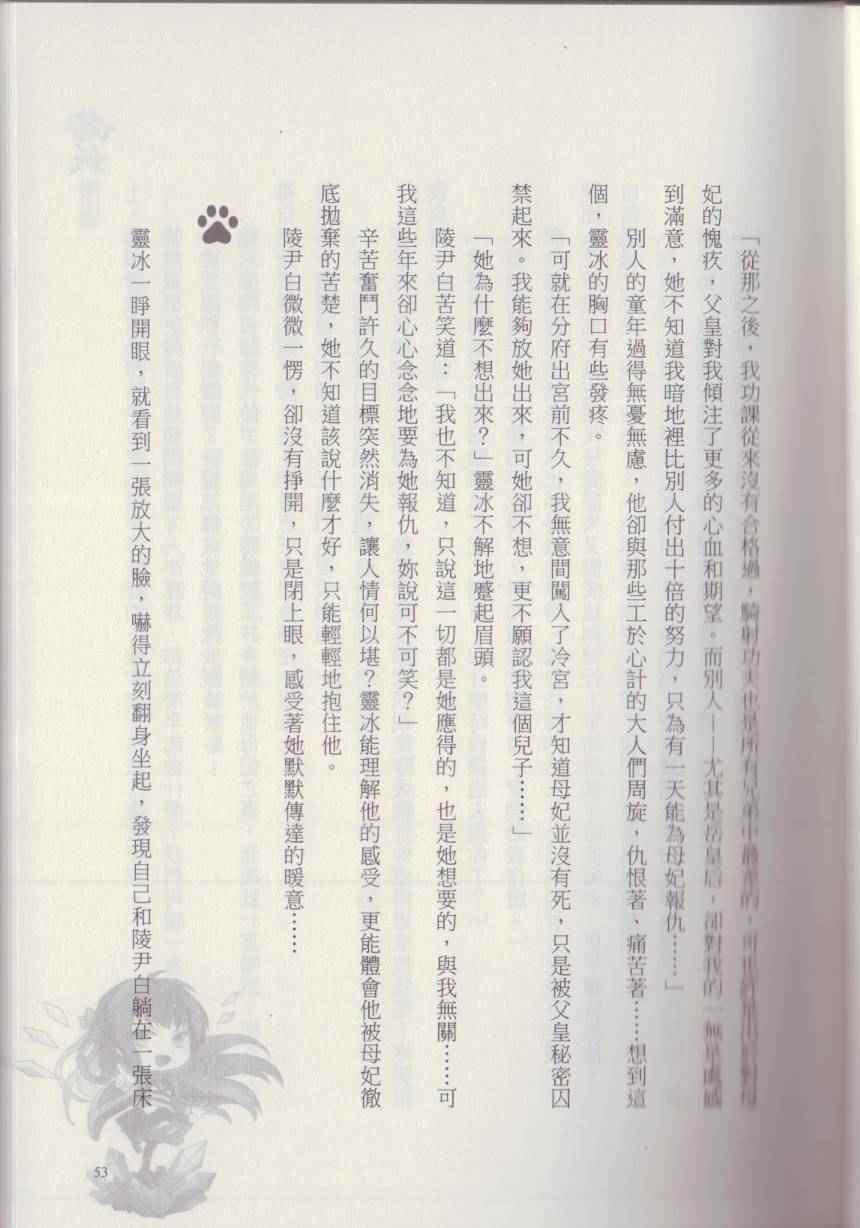 「從那之後，我功課從來沒有合格過，騎射功夫也是所有兄弟中最差的，可也許是出於對母
妃的愧疚，父皇對我傾注了更多的心血和期望。而別人——尤其是岳皇后，卻對我的一無是處感
到滿意，她不知道我暗地裡比別人付出十倍的努力，只為有一天能為母妃報仇……」
別人的童年過得無憂無慮，他卻與那些工於心計的大人們周旋，仇恨著、痛苦著……想到這
個，靈冰的胸口有些發疼。
「可就在分府出宮前不久，我無意間闖入了冷宮，才知道母妃並沒有死，只是被父皇秘密囚
禁起來。我能夠放她出來，可她卻不想，更不願認我這個兒子……」
「她為什麼不想出來？」靈冰不解地蹙起眉頭。
陵尹白苦笑道：「我也不知道，只說這一切都是她應得的，也是她想要的，與我無關……可
我這些年來卻心心念念地要為她報仇，妳說可不可笑？」
辛苦奮鬥許久的目標突然消失，讓人情何以堪？靈冰能理解他的感受，更能體會他被母妃徹
底拋棄的苦楚，她不知道該說什麼才好，只能輕輕地抱住他。
陵尹白微微一愣，卻沒有掙開，只是閉上眼，感受著她默默傳達的暖意……
靈冰一睜開眼，就看到一張放大的臉，嚇得立刻翻身坐起，發現自己和陵尹白躺在一張床
53